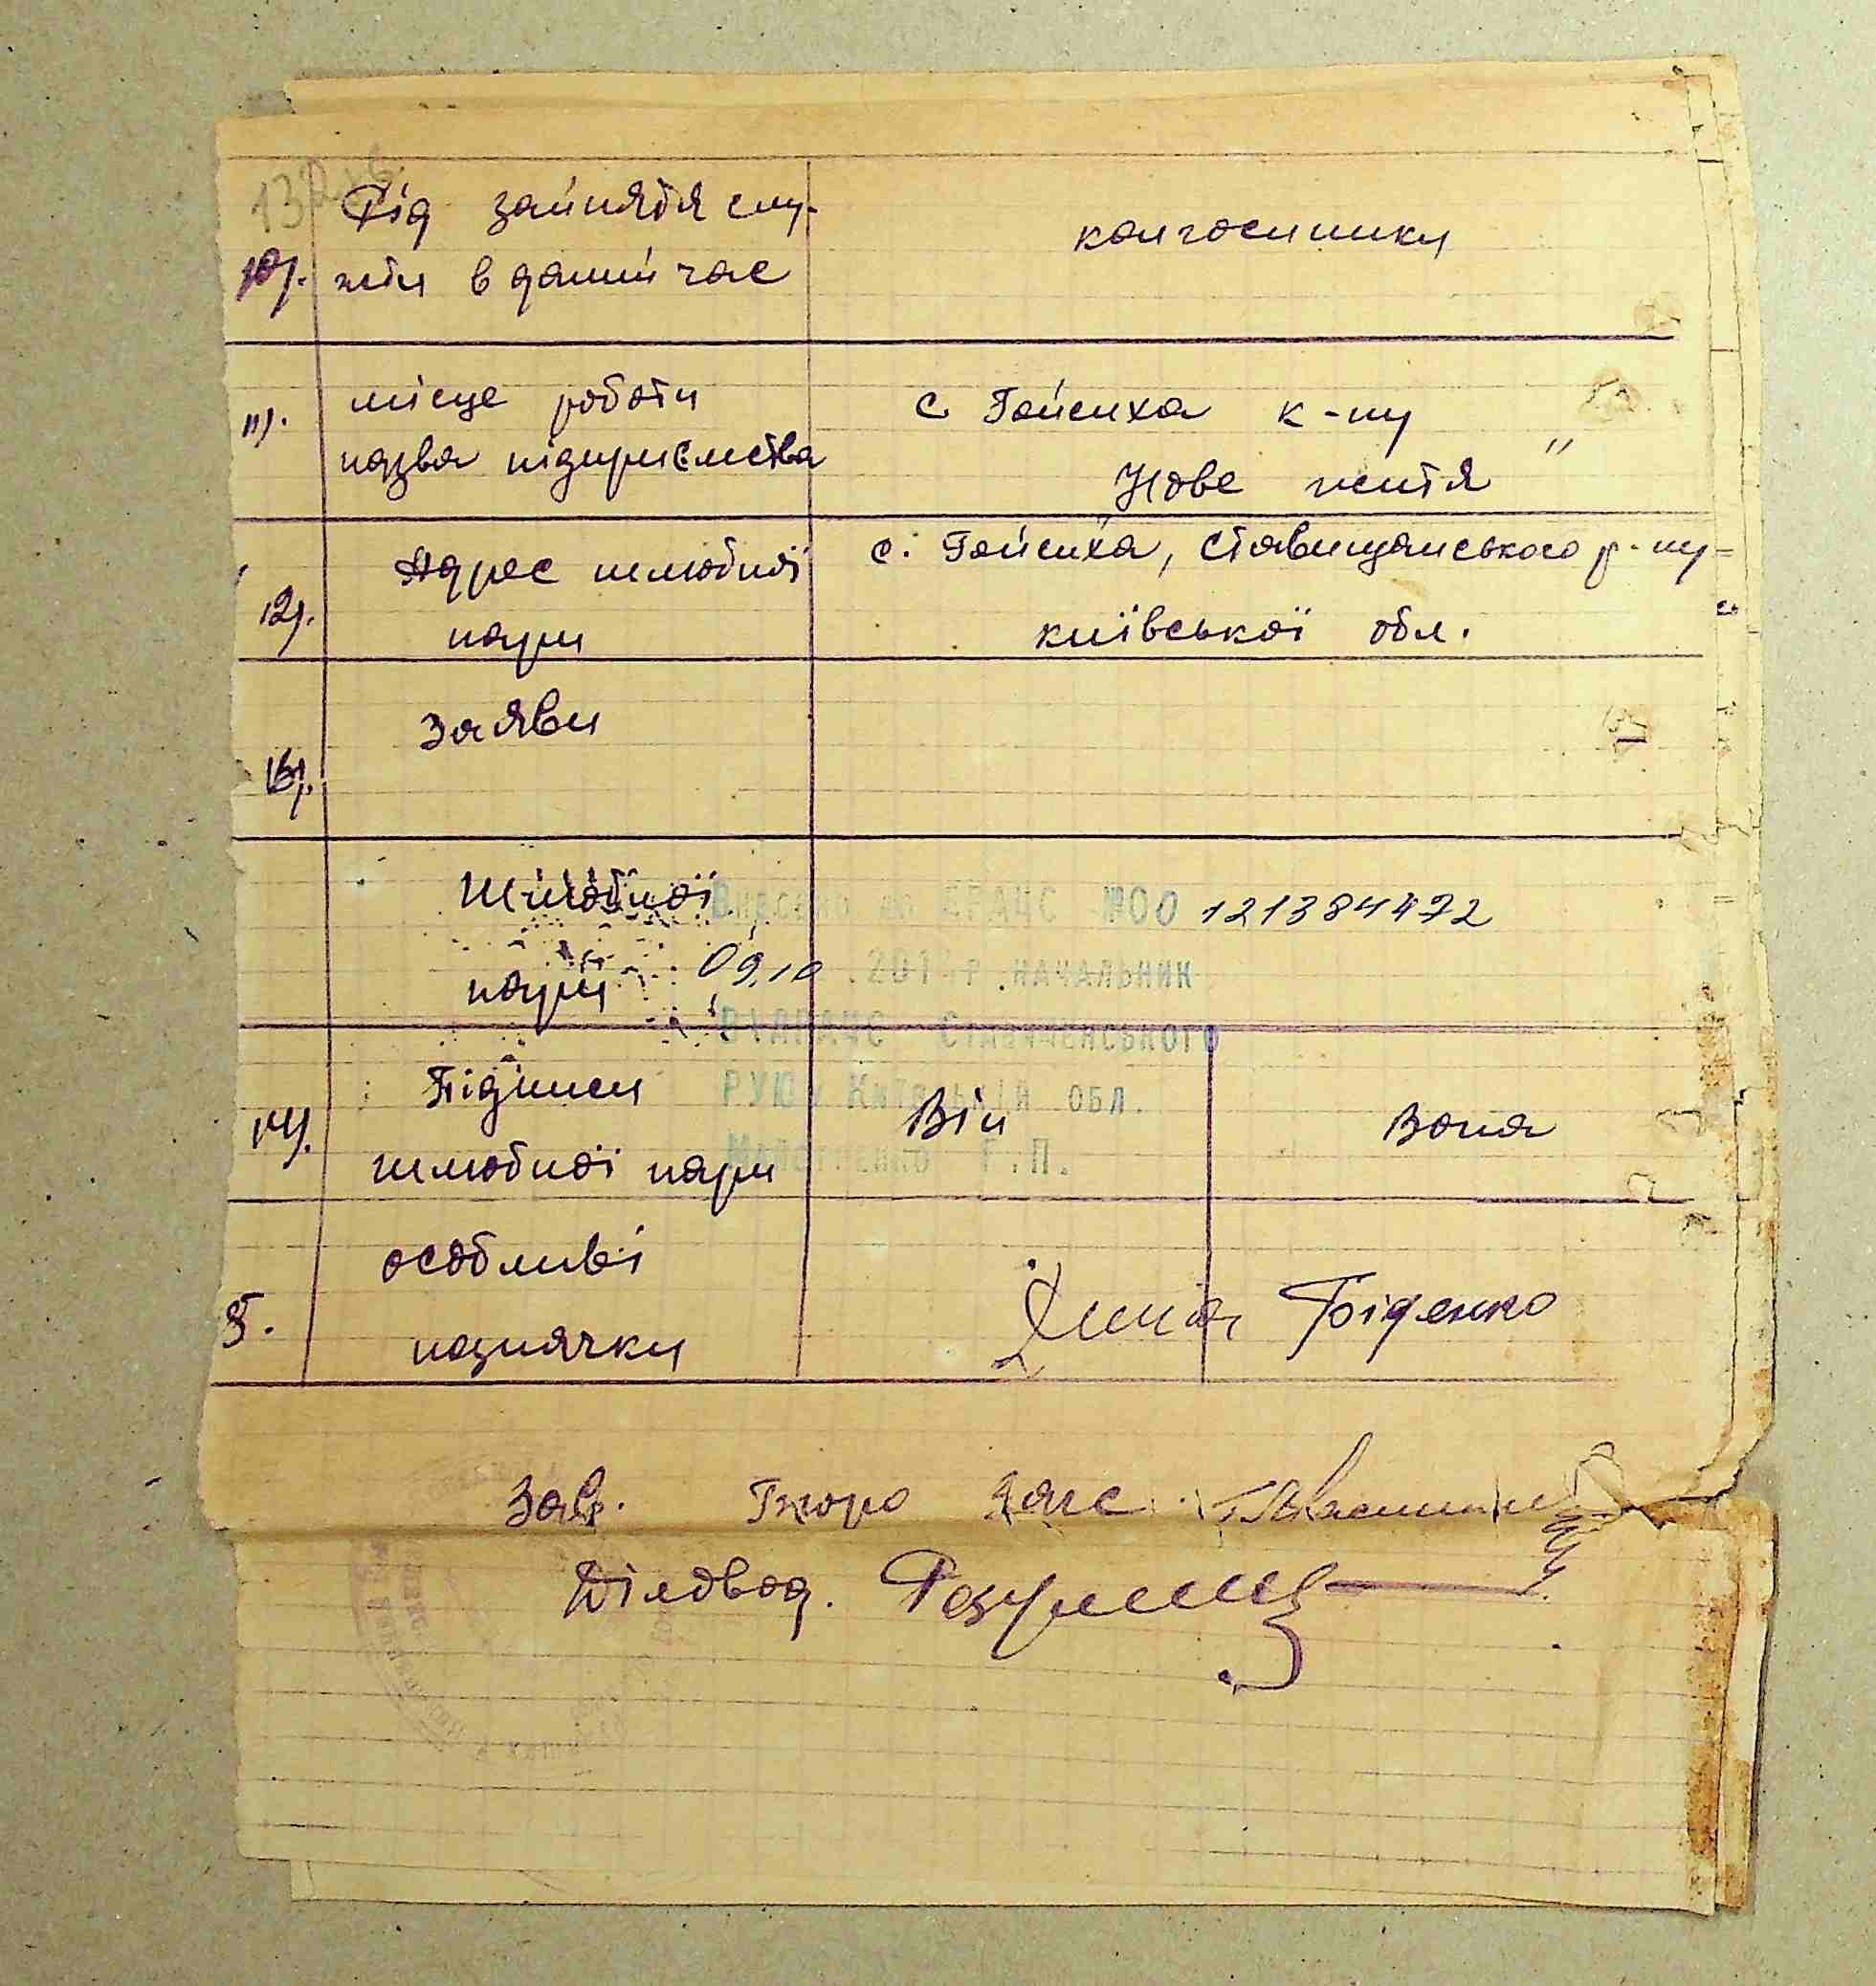 10).
Рід зайняття слу-
жби в даний час
колгоспники
11).
місце роботи
назва підприємства
с Гейсиха к-пу
Нове життя "
12).
Адрес шлюбної
пари
с. Гейсиха, Ставищанського р-ну
київської обл.
Заяви
Шлюбної
пари
Внесено до ДРАЦС №00 121384472
09.10 .201 р.начальник
Ставищенського
РУЮ у Київській обл.
Г.П.
14).
Підписи
шлюбної пари
Він
Вона
особливі
позначки
Біденко
Зав. Бюро Загс
Діловод.